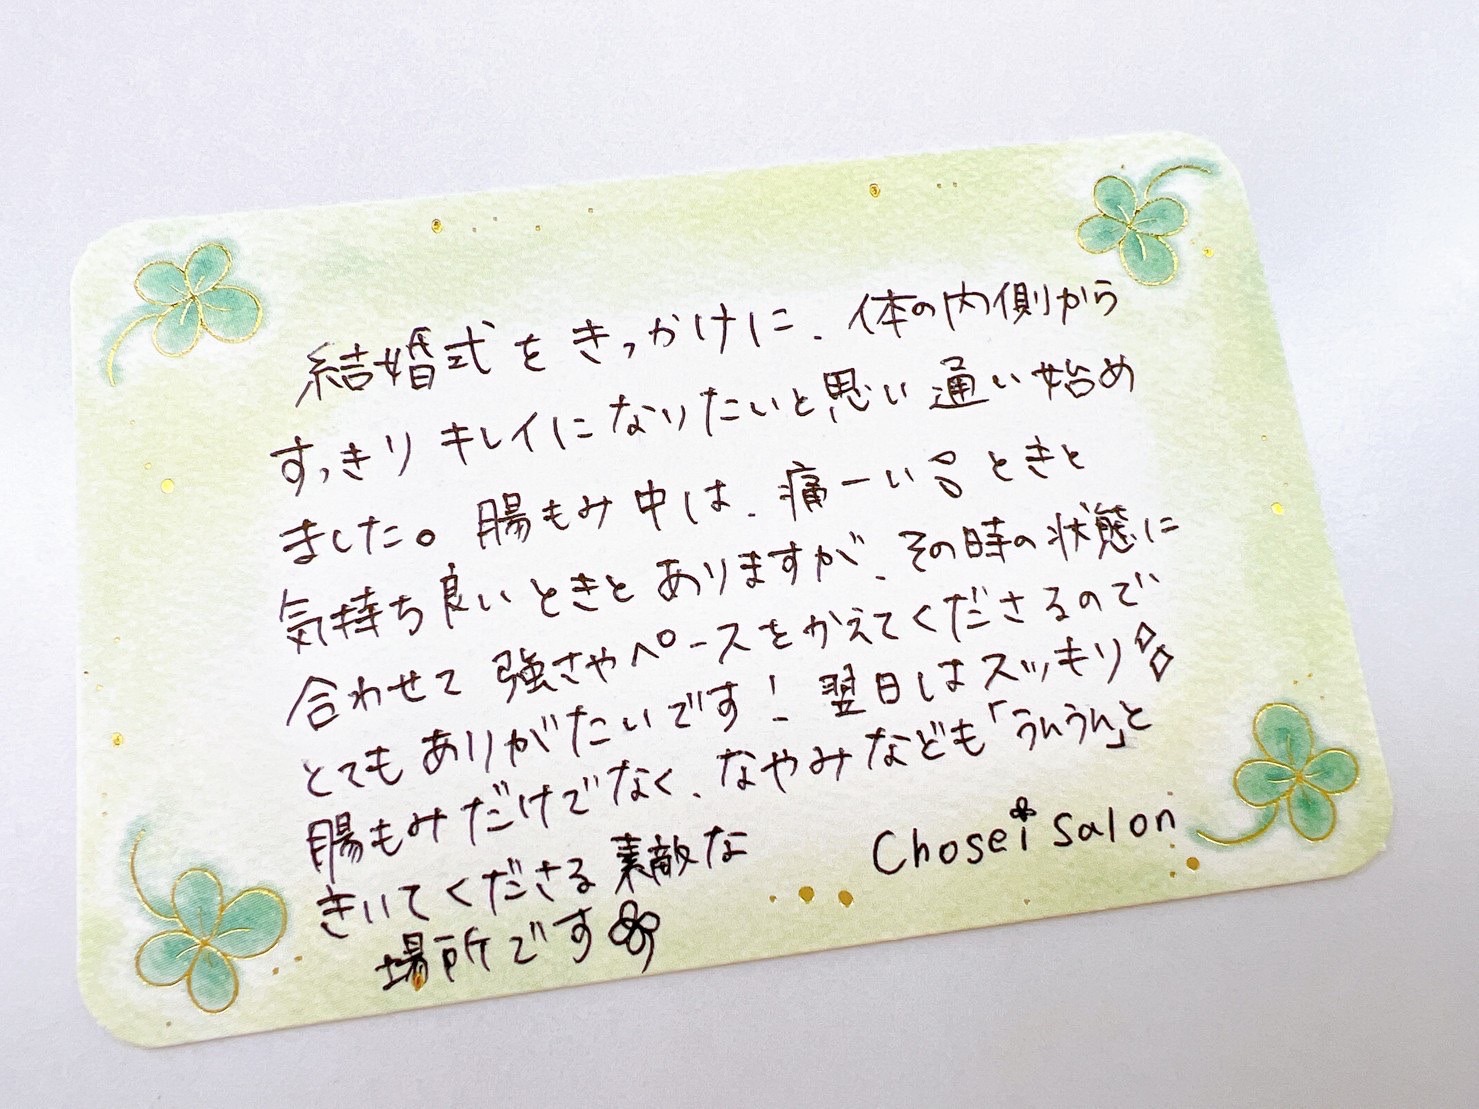 結婚式をきっかけに、体の内側から
すっきりキレイになりたいと思い通い始め
ました。腸もみ中は、痛ーい ときと
気持ち良いときとありますが、その時の状態に
合わせて強さやペースをかえてくださるので
とてもありがたいです！翌日はスッキリ
腸もみだけでなく、なやみなども「うんうん」と
きいてくださる素敵な
場所です
Chosei salon